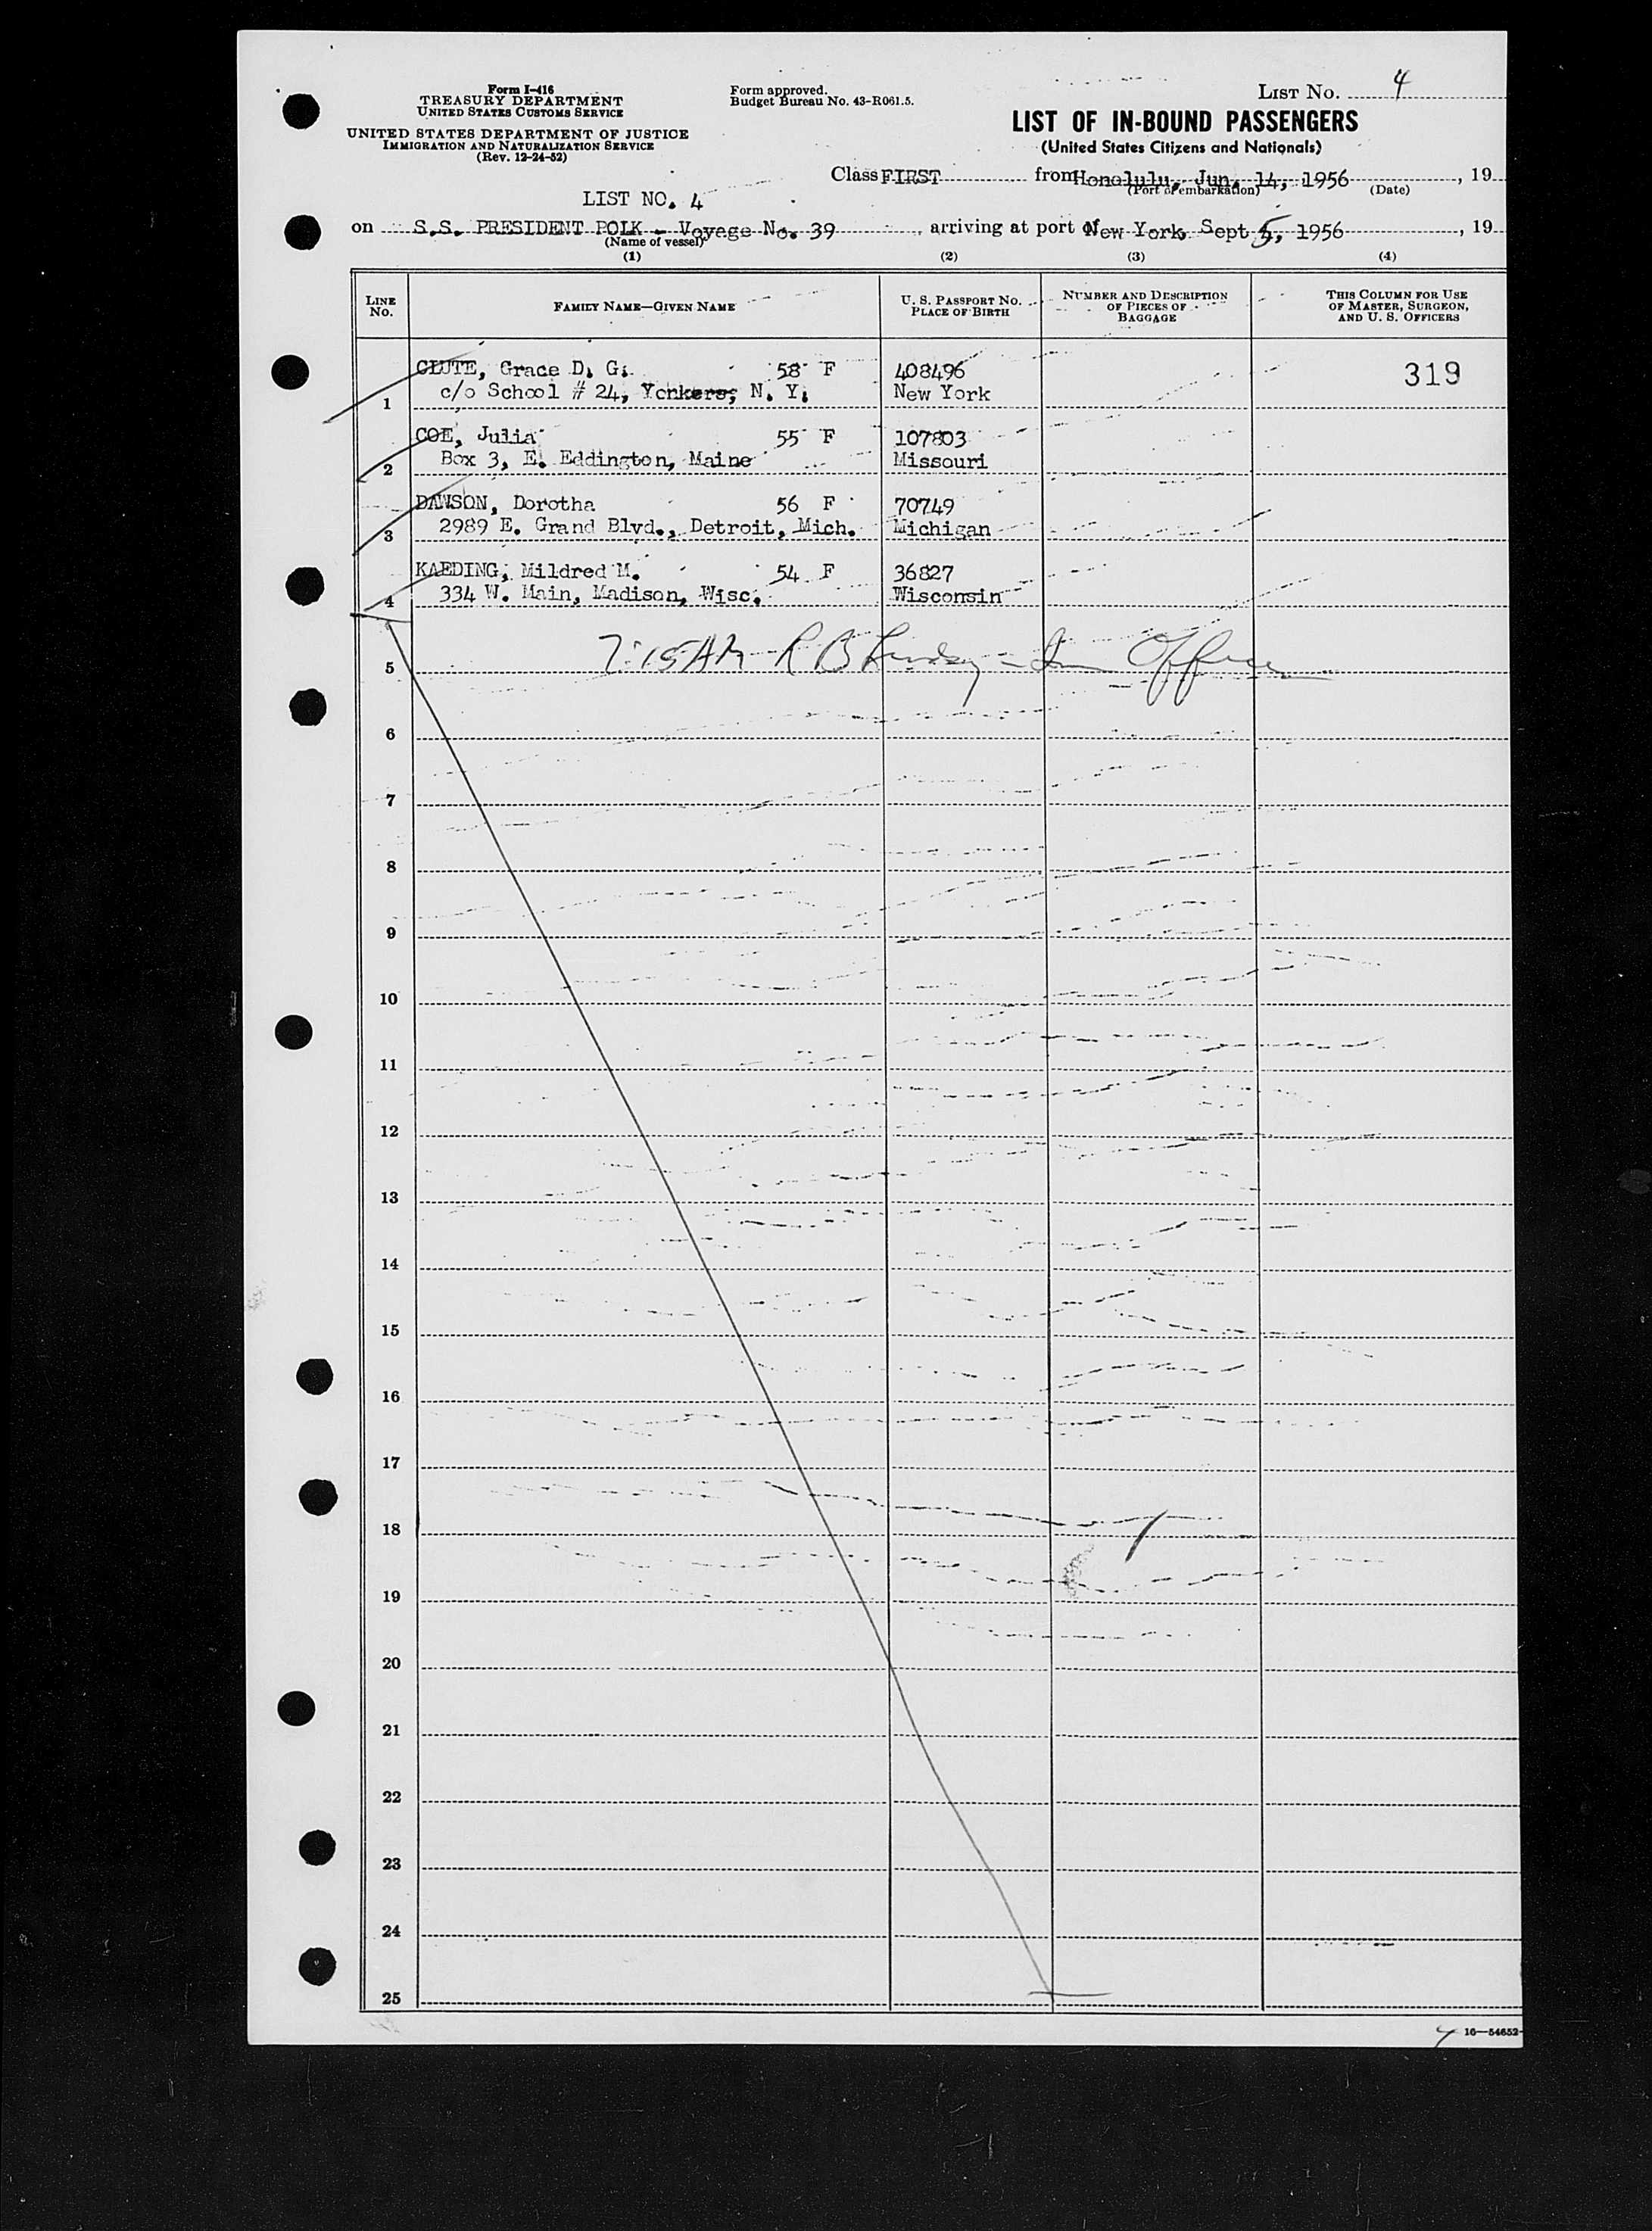 Form I-416
TREASURY DEPARTMENT
UNITED STATES CUSTOMS SERVICE
UNITED STATES DEPARTMENT OF JUSTICE
IMMIGRATION AND NATURALIZATION SERVICE
(Rev. 12-24-52)
Form approved.
Budget Bureau No. 43-R061.5.
LIST No. 4
LIST OF IN-BOUND PASSENGERS
(United States Citizens and Nationals)
Class FIRST from Honolulu, Jun, 14, 1956, 19
(Port of embarkation) (Date)
LIST NO. 4
on S.S. PRESIDENT POLK - Voyage No. 39, arriving at port of New York, Sept 5, 1956, 19
(Name of vessel)
(1) (2) (3) (4)
LINE No. FAMILY NAME—GIVEN NAME U. S. PASSPORT NO. PLACE OF BIRTH NUMBER AND DESCRIPTION OF PIECES OF BAGGAGE THIS COLUMN FOR USE OF MASTER, SURGEON, AND U. S. OFFICERS
CLUTE, Grace D. G. 58 F 408496 319
1 c/o School # 24, Yonkers, N. Y. New York
COE, Julia 55 F 107803
2 Box 3, E. Eddington, Maine Missouri
DAWSON, Dorotha 56 F 70749
3 2989 E. Grand Blvd., Detroit, Mich. Michigan
KAEDING, Mildred M. 54 F 36827
4 334 W. Main, Madison, Wisc. Wisconsin
5 7:15 AM R B Lindsay - Imm Officer
6
7
8
9
10
11
12
13
14
15
16
17
18
19
20
21
22
23
24
25
16—54652